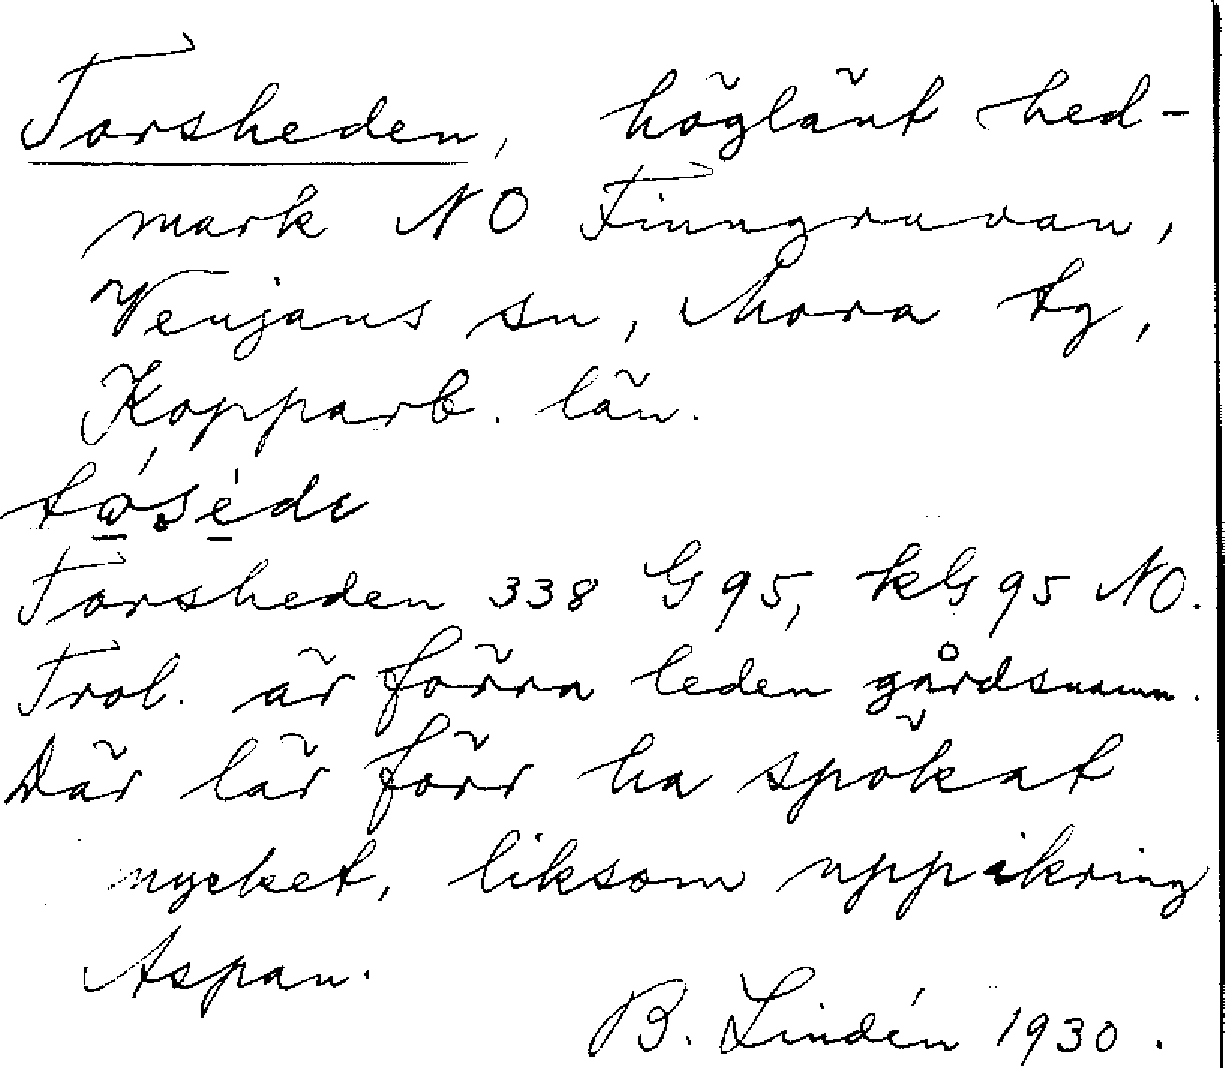 Torsheden, högländt hed-
mark NO Finngruvan,
Venjans sn, Mora tg,
Kopparb. län.
Torsheden 338 G 95, kG 95 NO.
Trol. är förra leden gårdsnamn.
Där lär förr ha spökat
mycket, liksom uppikring
Aspan.
B. Lindén 1930.